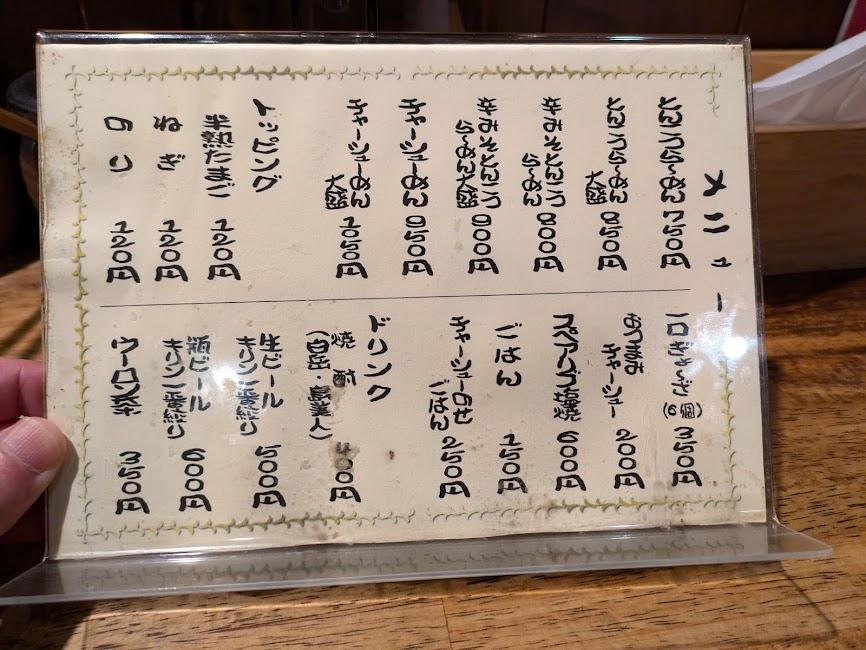 メニュー
とんこつら〜めん 750円
とんこつら〜めん
大盛 850円
辛みそとんこつ
ら〜めん 800円
辛みそとんこつ
ら〜めん大盛 900円
チャーシューめん 950円
チャーシューめん
大盛 1050円
トッピング
半熟たまご 120円
ねぎ 120円
のり 120円
一口ぎょ〜ざ(6個) 350円
おつまみ
チャーシュー 200円
スペアリブ塩焼 600円
ごはん 150円
チャーシューのせ
ごはん 250円
ドリンク
焼酎
(白岳・島美人) 400円
生ビール
キリン一番絞り 500円
瓶ビール
キリン一番絞り 600円
ウーロン茶 350円